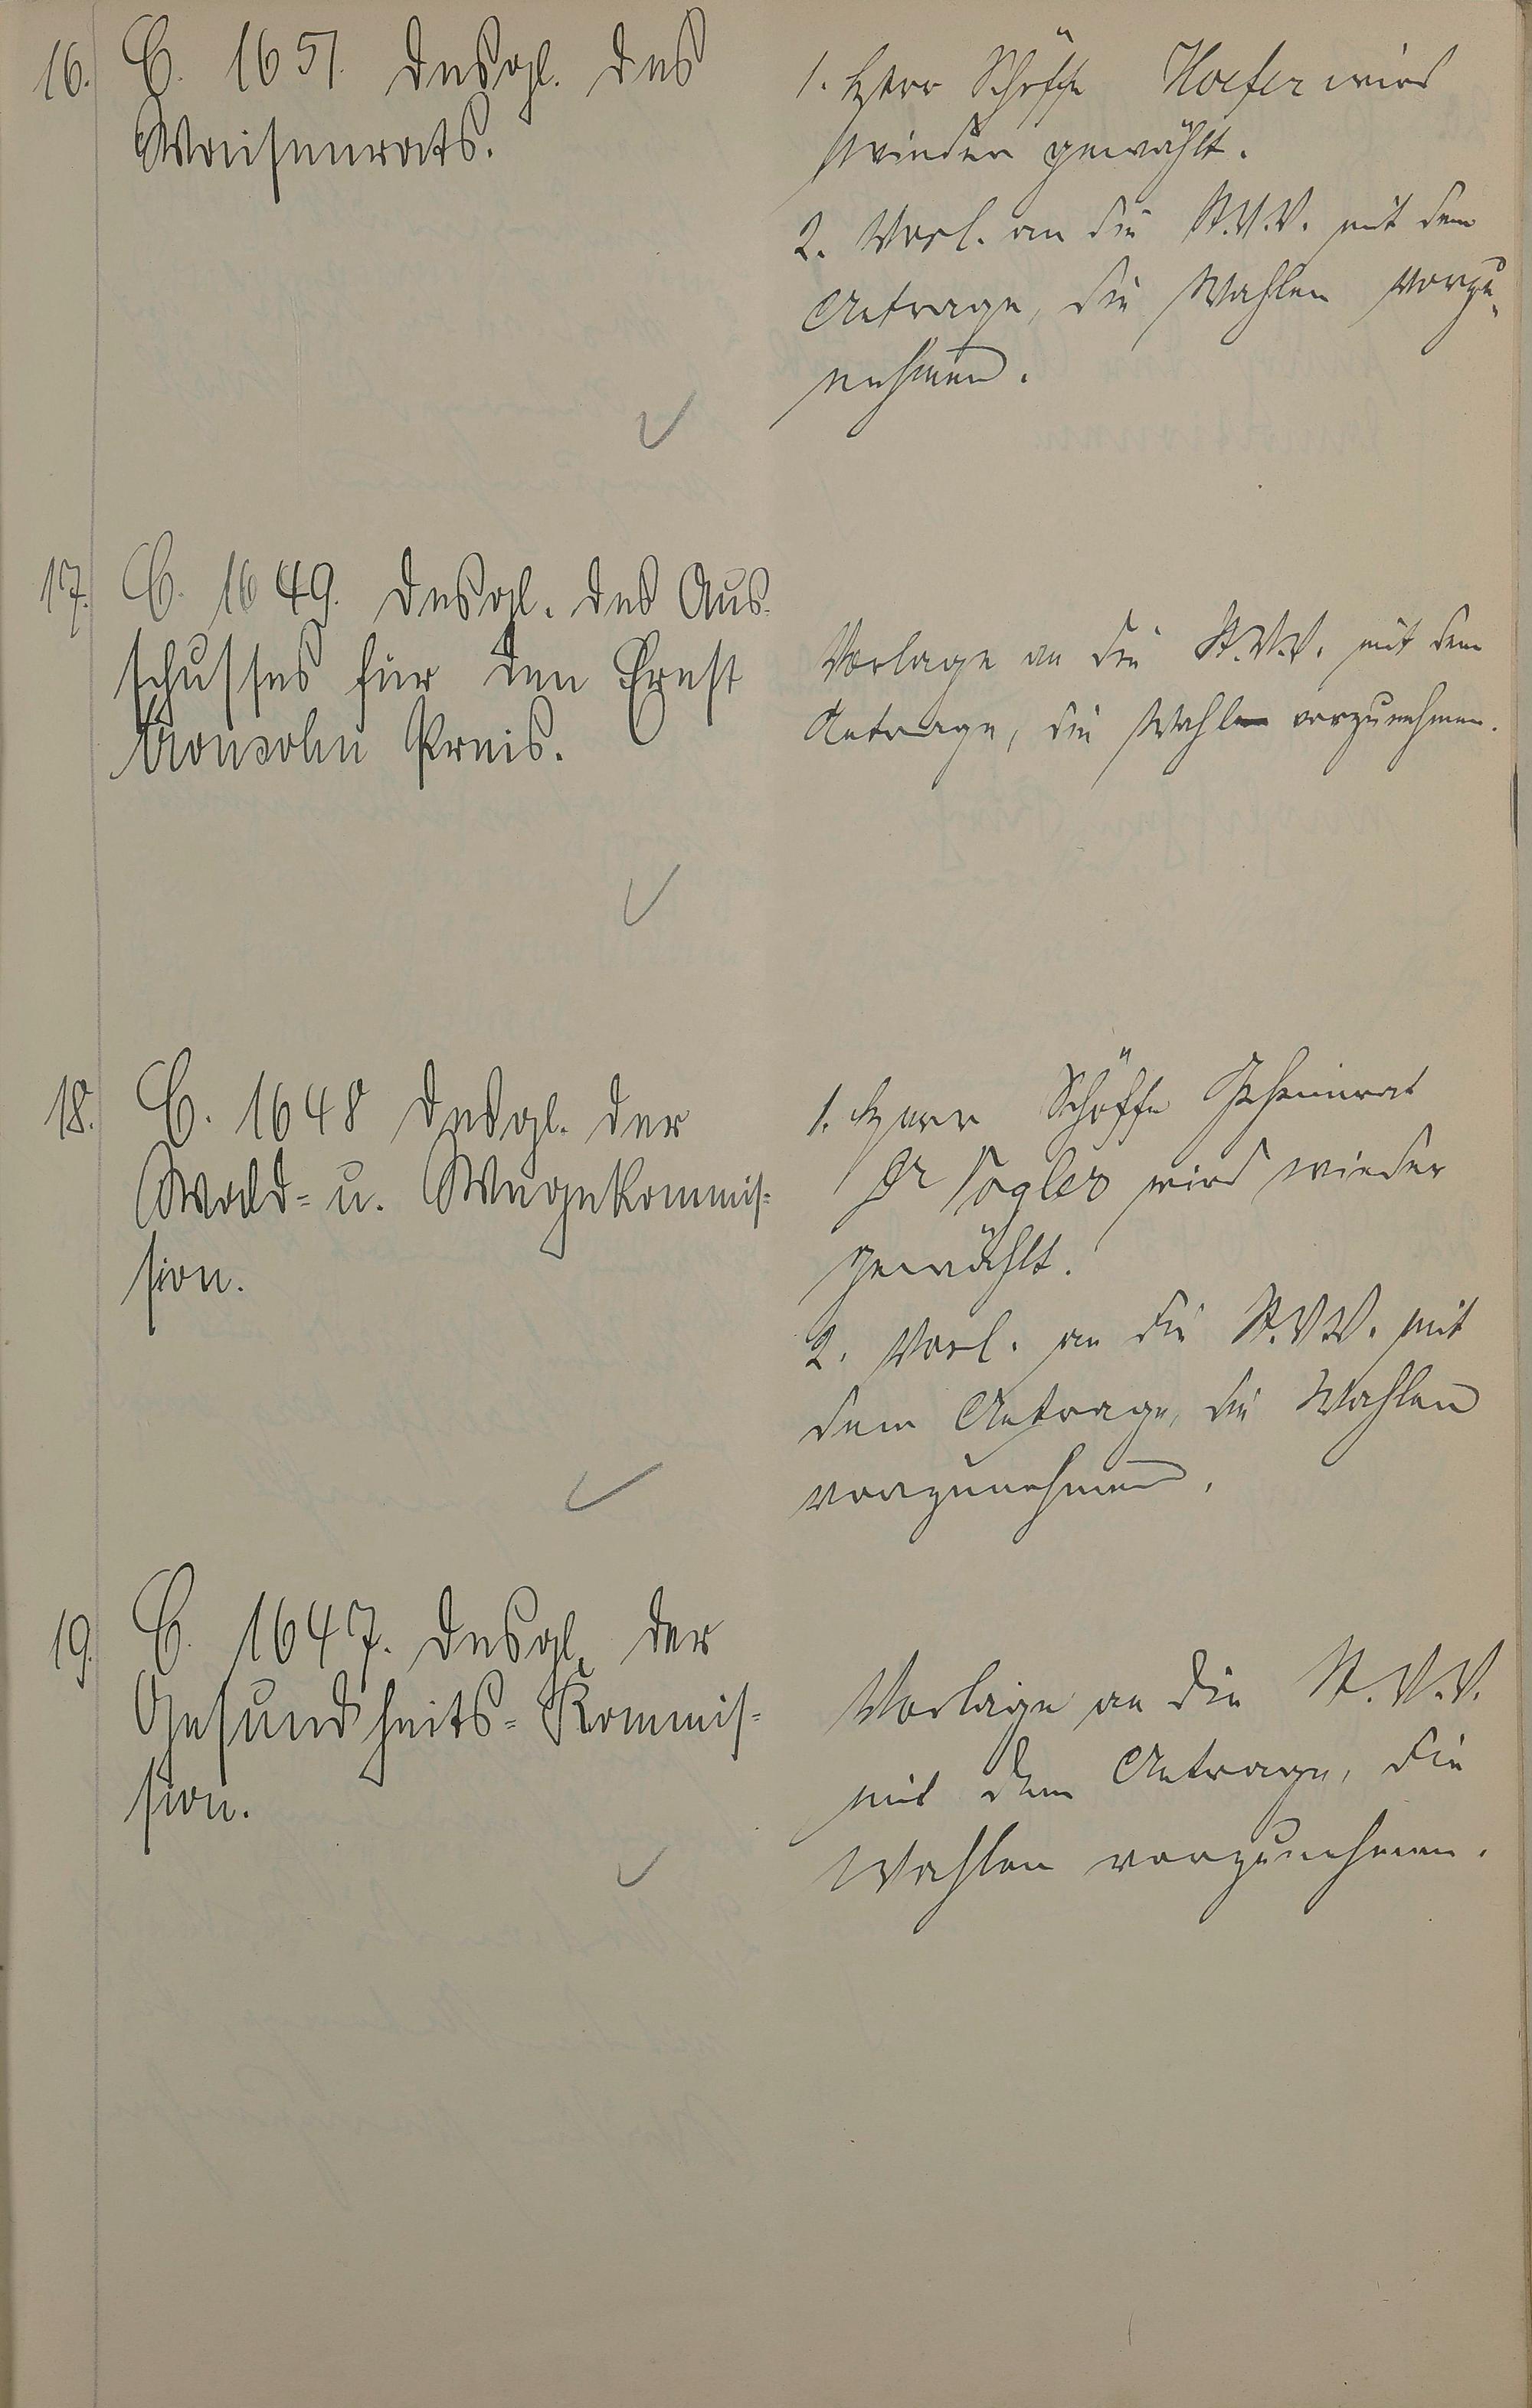 16. C. 1651. desgl. des
Waisenrats.
1. Herr Schöffe Hoefer wird
wieder gewählt.
2. Vorl. an die St.V.V. mit dem
Antrage, die Wahlen vorzu-
nehmen.
17. C. 1649. desgl. des Aus-
schusses für den Ernst
Aronsohn Preis.
Vorlage an die St.V.V. mit dem
Antrage, die Wahl vorzunehmen.
18. C. 1648 desgl. der
Wald- u. Wegekommis-
sion.
1. Herr Schöffe Geheimrat
Dr Vogler wird wieder
gewählt.
2. Vorl. an die St.V.V. mit
dem Antrage, die Wahlen
vorzunehmen.
19. C. 1647. desgl. der
Gesundheits-Kommis-
sion.
Vorlage an die St.V.V.
mit dem Antrage, die
Wahlen vorzunehmen.